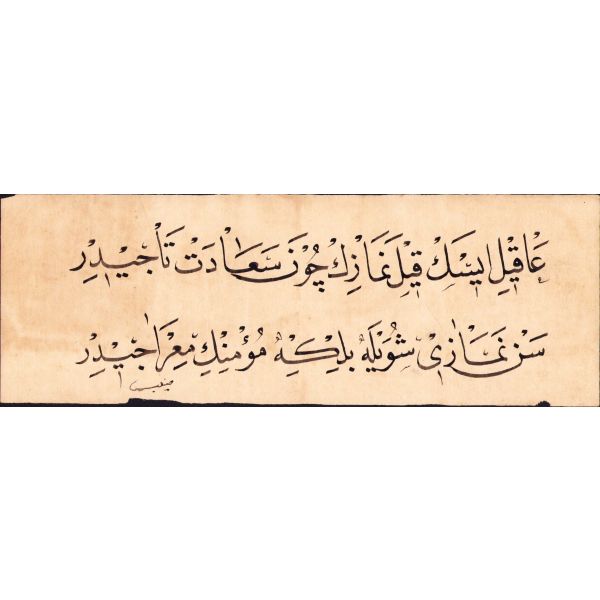 عَاقِیلِ ایسَكْ قِیلْ نَمَازِكْ چُونْ سَعَادَتْ تَاجِیدِرْ
سَنْ نَمَازِی شُویْلَهْ بِلْكِهْ مُؤْمِنِكْ مِعْرَاجِیدِرْ